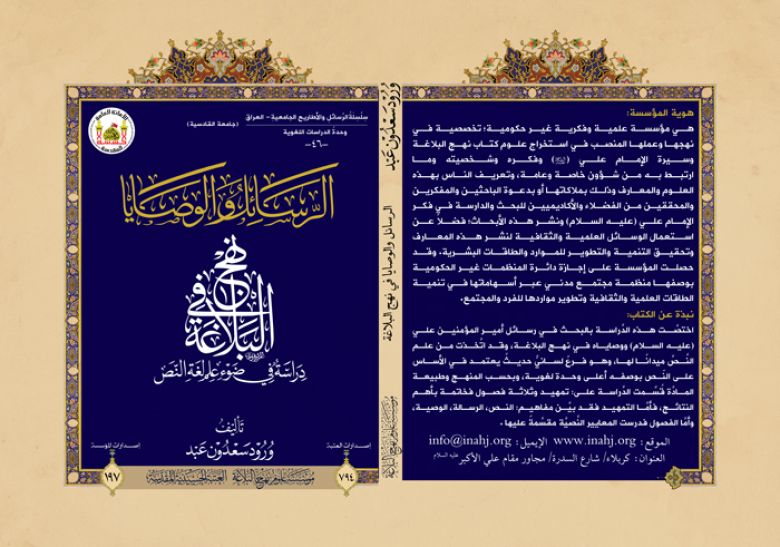 سلسلة الرسائل والأطاريح الجامعية – العراق
(جامعة القادسية)
وحدة الدراسات اللغوية
-٤٦-
الرسائل والوصايا
في نهج البلاغة
دراسة في ضوء علم لغة النص
تأليف
ورود سعدون عبد
إصدارات العتبة
٧٩٤
إصدارات المؤسسة
١٩٧
مؤسسة علوم نهج البلاغة العتبة الحسينية المقدسة
ورود سعدون عبد
الرسائل والوصايا في نهج البلاغة
مؤسسة علوم نهج البلاغة
هوية المؤسسة:
هي مؤسسة علمية وفكرية غير حكومية؛ تخصصية في
نهجها وعملها المنصب في استخراج علوم كتاب نهج البلاغة
وسيرة الإمام علي وفكره وشخصيته وما
ارتبط به من شؤون خاصة وعامة، وتعريف الناس بهذه
العلوم والمعارف وذلك بملاكاتها أو بدعوة الباحثين والمفكرين
والمحققين من الفضلاء والأكاديميين للبحث والدارسة في فكر
الإمام علي (عليه السلام) ونشر هذه الأبحاث؛ فضلاً عن
استعمال الوسائل العلمية والثقافية لنشر هذه المعارف
وتحقيق التنمية والتطوير للموارد والطاقات البشرية. وقد
حصلت المؤسسة على إجازة دائرة المنظمات غير الحكومية
بوصفها منظمة مجتمع مدني عبر أسهاماتها في تنمية
الطاقات العلمية والثقافية وتطوير مواردها للفرد والمجتمع.
نبذة عن الكتاب:
اختصّت هذه الدّراسة بالبحث في رسائل أمير المؤمنين علي
(عليه السلام) ووصاياه في نهج البلاغة، وقد اتّخذت من علم
النّصّ ميدانًا لها، وهو فرعٌ لسانيٌ حديثٌ يعتمد في الأساس
على النّص بوصفه أعلى وحدة لغوية، وبحسب المنهج وطبيعة
المادّة قُسّمت الدّراسة على: تمهيد وثلاثة فصول فخاتمة بأهم
النتائج، فأمّا التمهيد فقد بيّن مفاهيم: النص، الرسالة، الوصية،
وأمّا الفصول فدرست المعايير النّصّيّة مقسّمة عليها.
الموقع: www.inahj.org الإيميل: info@inahj.org
العنوان: كربلاء/ شارع السدرة/ مجاور مقام علي الأكبر عليه السلام